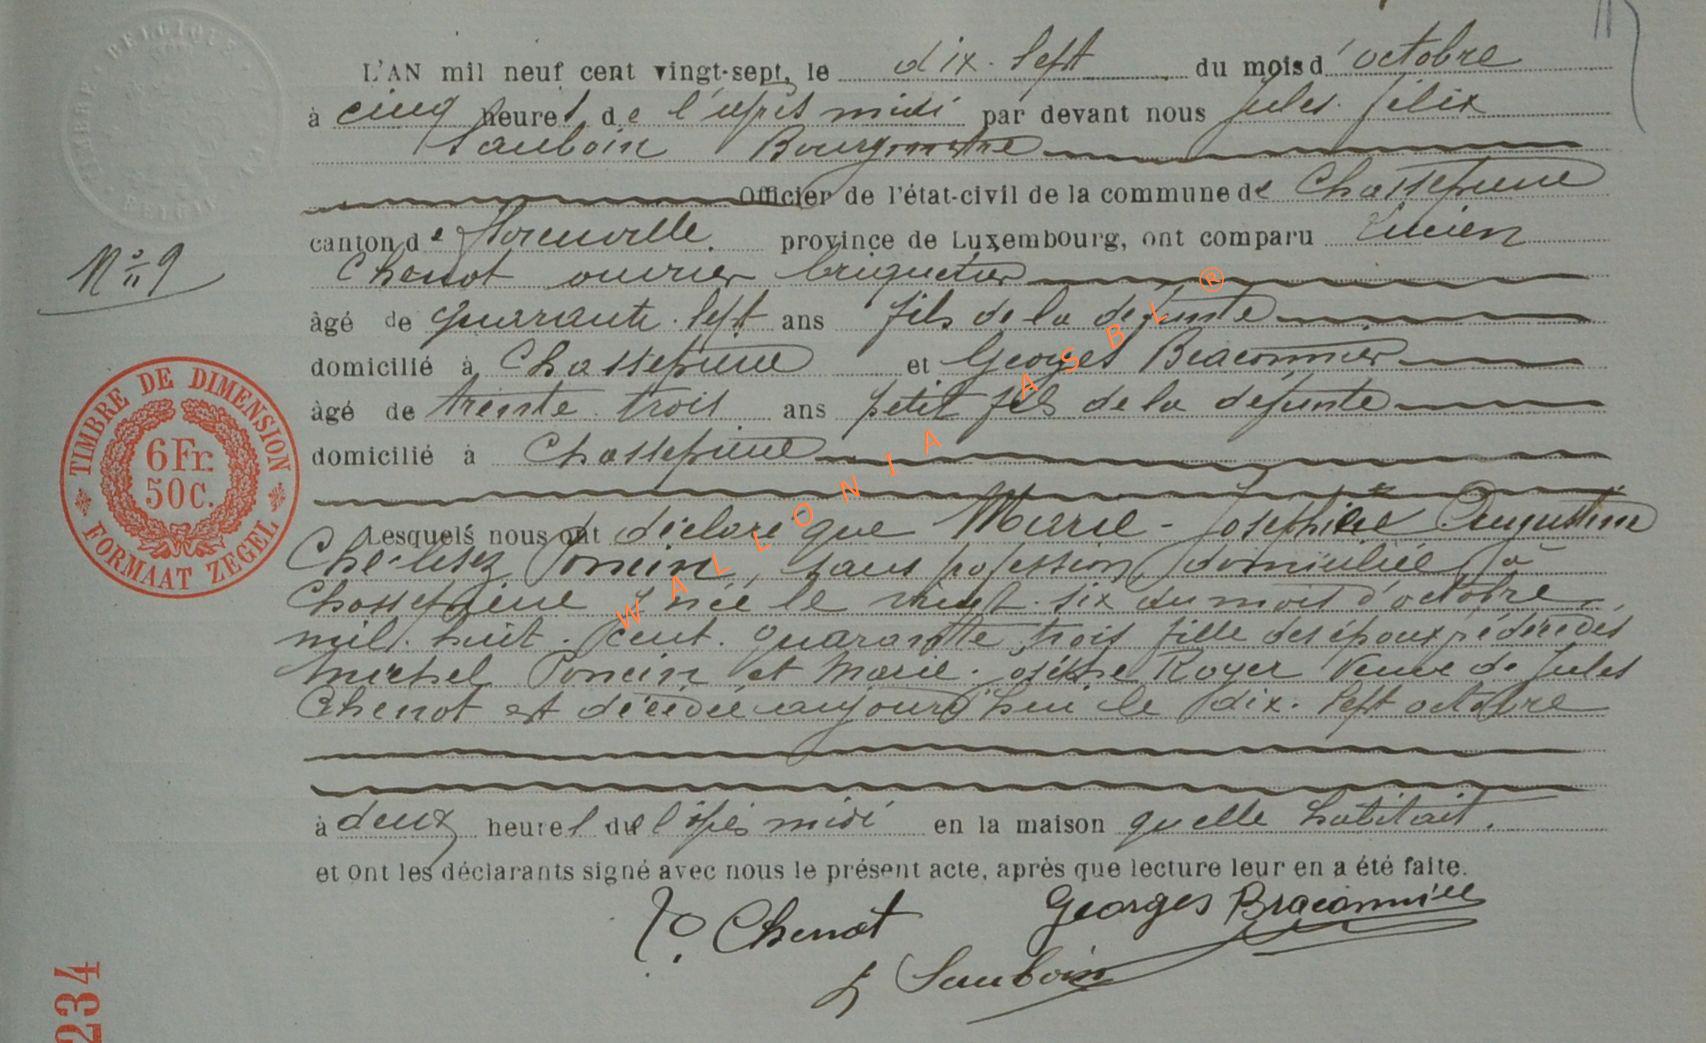 BELGIQUE
TIMBRE
BELGIE
L'AN mil neuf cent vingt-sept, le dix-sept du mois d'octobre
à cinq heures de l'après midi par devant nous Jules Félix
Sauboin Bourgmestre
Officier de l'état-civil de la commune de Chassepierre
canton de Florenville province de Luxembourg, ont comparu Lucien
Nº 9
Chenot ouvrier briquetier
âgé de quarante-sept ans fils de la défunte
domicilié à Chassepierre et Georges Braconnier
âgé de trente trois ans petit fils de la défunte
domicilié à Chassepierre
TIMBRE DE DIMENSION
6 Fr.
50 C.
FORMAAT ZEGEL
Lesquels nous ont déclaré que Marie-Josephine Augustine
Poncin, sans profession, domiciliée à
Chassepierre née le vingt-six du mois d'octobre
mil huit cent quarante trois fille des époux décédés
Michel Poncin et Marie Royer Veuve de Jules
Chenot est décédée aujourd'hui le dix-sept octobre
à deux heures de l'après midi en la maison quelle habitait.
et ont les déclarants signé avec nous le présent acte, après que lecture leur en a été faite.
Chenot Georges Braconnier
Sauboin
234
WALLONIA ASBL ®